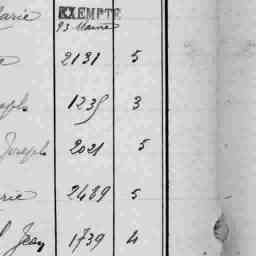 Marie EXEMPTE
93 Marne
e 2131 5
eph 1235 3
Joseph 2021 5
rie 2489 5
Jean 1739 4